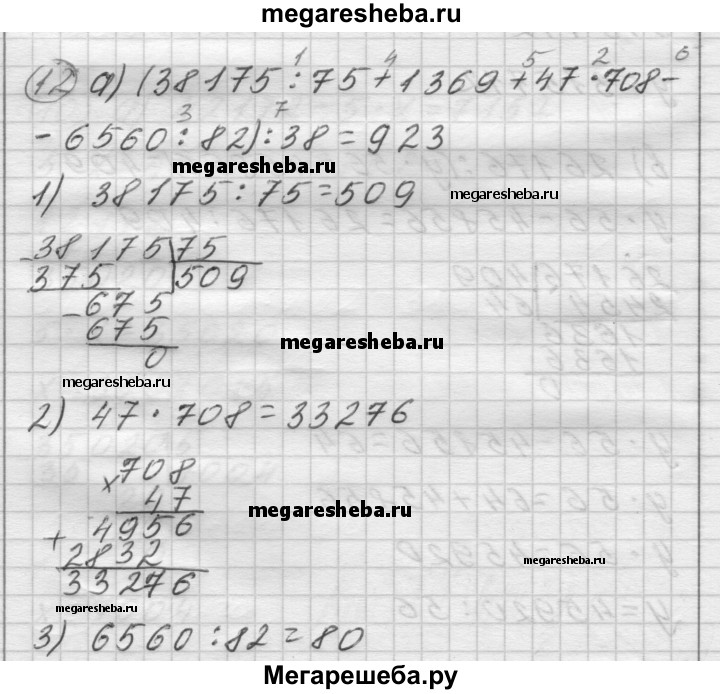 megaresheba.ru
1 4 5 2 6
12 а) (38175:75+1369+47·708-
3 7
-6560:82):38=923
megaresheba.ru
1) 38175:75=509 megaresheba.ru
-38175|75
375 |509
-675
675
0 megaresheba.ru
megaresheba.ru
2) 47·708=33276
×708 megaresheba.ru
47
megaresheba.ru
+4956
2832 megaresheba.ru
33276
megaresheba.ru
3) 6560:82=80
Мегарешеба.ру